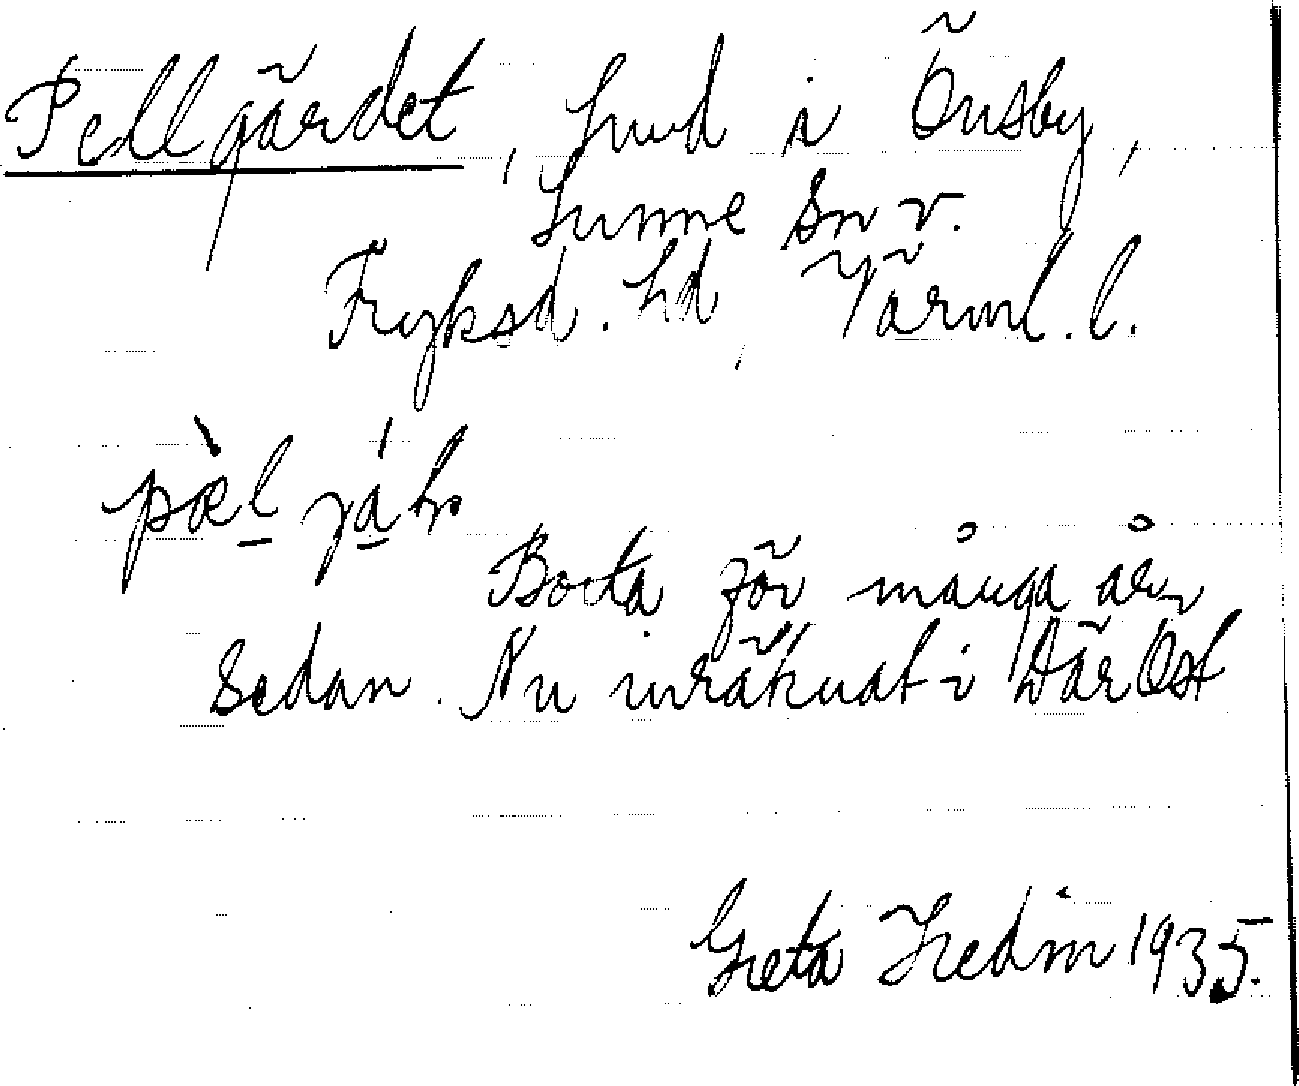 Pellgärdet, hmd i Önsby,
Sunne Sn v.
Fryksd. hd, Värml. l.
pæl jà
Borta för många år
sedan. Nu inräknat i Där Öst
Greta Hedin 1935.